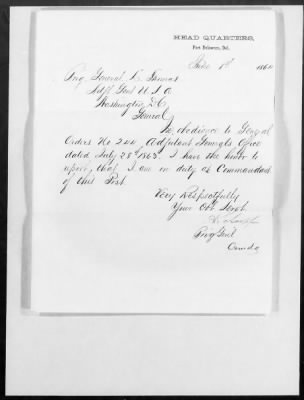 HEAD QUARTERS,
Fort Delaware, Del.
June 1st 1864
Brig General L. Thomas
Adjt Genl U.S.A.
Washington D.C.
General
In obedience to General
Orders No 244, Adjutant Generals Office
dated July 28th 1863. I have the honor to
report, that I am on duty as Commandant
of this Post
Very Respectfully
Your Obt Servt
Brig Genl
Comdg